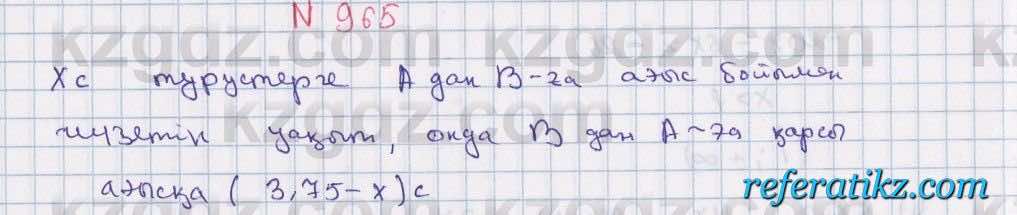 N 965
Хс турустерге А дан В-га ағыс бойымен
жүзетін уақыт, онда В дан А-ға қарсы
ағысқа ( 3,75-х)с
referatikz.com
kzgdz.com